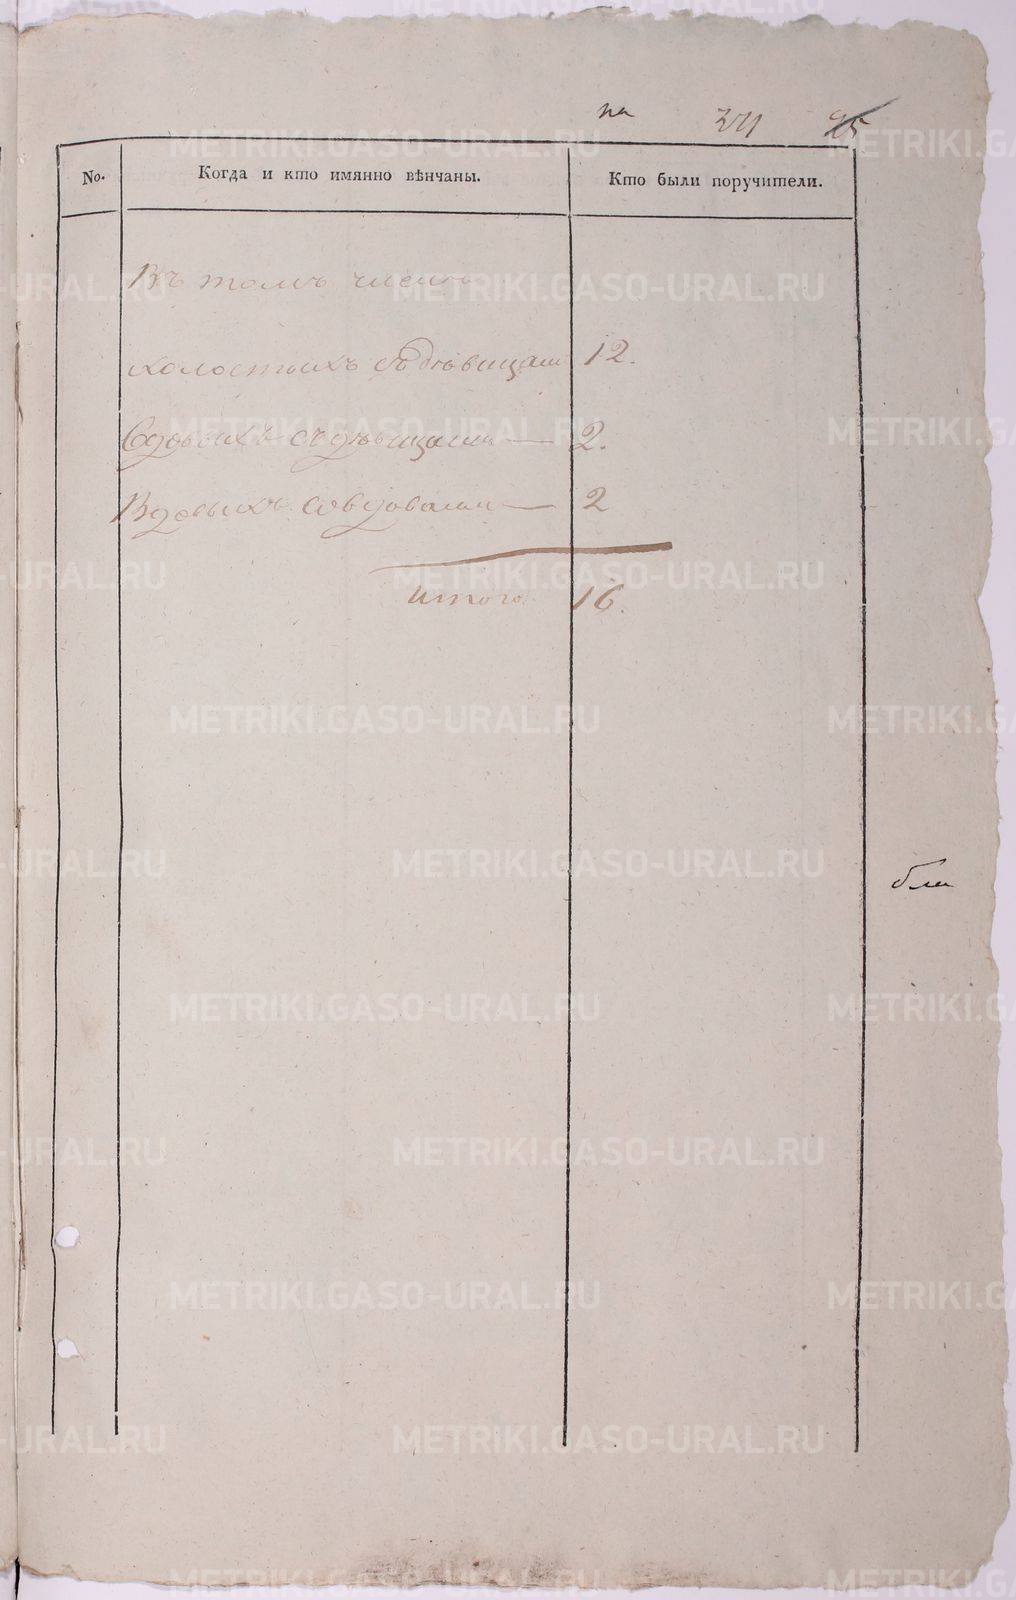 на 341 25
No. Когда и кто имянно вѣнчаны. Кто были поручители.
Въ томъ числѣ
холостыхъ съ дѣвицами 12.
Вдовыхъ съ дѣвицами — 2.
Вдовыхъ со вдовами — 2
Итого 16.
METRIKI.GASO-URAL.RU